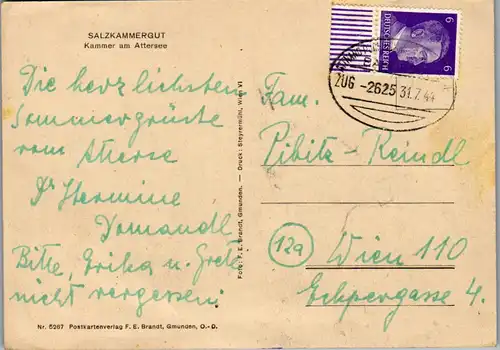 SALZKAMMERGUT
Kammer am Attersee
Die herzlichsten
Sommergrüße
vom Attersee
Dr Hermine
Domandl
Bitte, Erika u. Grete
nicht vergessen!
Nr. 5267 Postkartenverlag F. E. Brandt, Gmunden, O.-D.
Foto: F. E. Brandt, Gmunden. — Druck: Steyrermühl, Wien VI
DEUTSCHES REICH
6 6
ZUG -2625 31.7.44
Fam.
Pibitz-Reindl
12a
Wien 110
Eckpergasse 4.